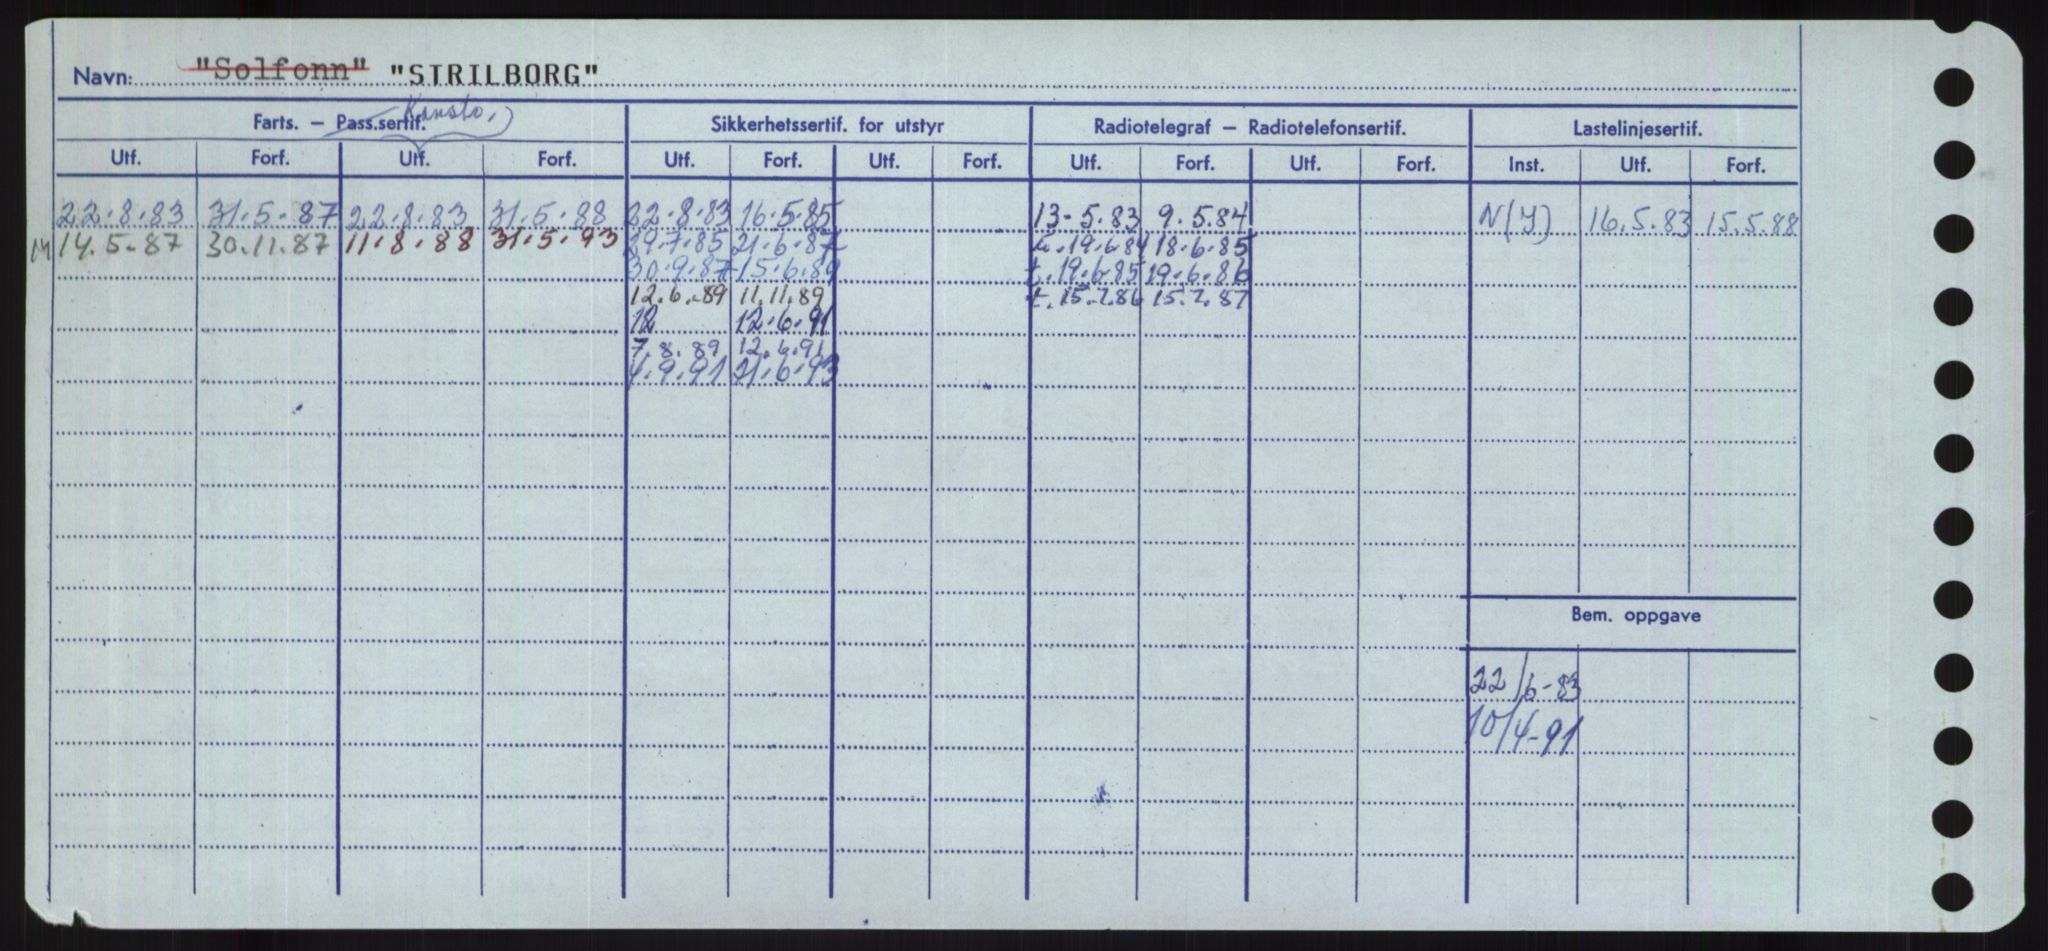 Navn: "Solfonn" "STRILBORG"
Farts. – Pass.sertif. Konstr. Sikkerhetssertif. for utstyr Radiotelegraf – Radiotelefonsertif. Lastelinjesertif.
Utf. Forf. Utf. Forf. Utf. Forf. Utf. Forf. Utf. Forf. Utf. Forf. Inst. Utf. Forf.
22.8.83 31.5.87 22.8.83 31.5.88 22.8.83 16.5.85 13.5.83 9.5.84 N(Y) 16.5.83 15.5.88
M 14.5.87 30.11.87 11.8.88 31.5.93 29.7.85 21.6.87 t.19.6.84 18.6.85
30.9.87 15.6.89 t.19.6.85 19.6.86
12.6.89 11.11.89 t.15.7.86 15.7.87
12 12.6.91
7.8.89 12.6.91
4.9.91 21.6.93
Bem. oppgave
22/6-83
10/4-91